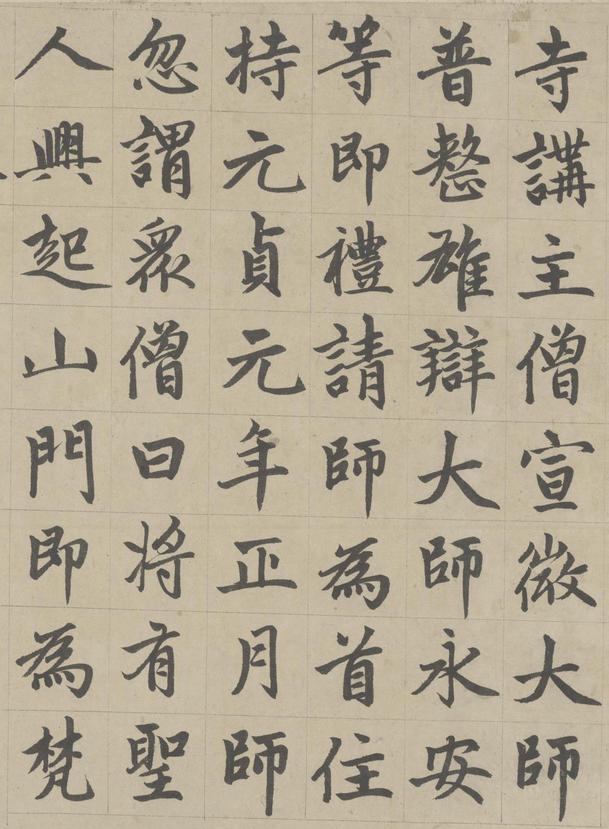 寺講主僧宣微大師
普整雄辯大師永安
等即禮請師為首住
持元貞元年正月師
忽謂眾僧曰將有聖
人興起山門即為梵